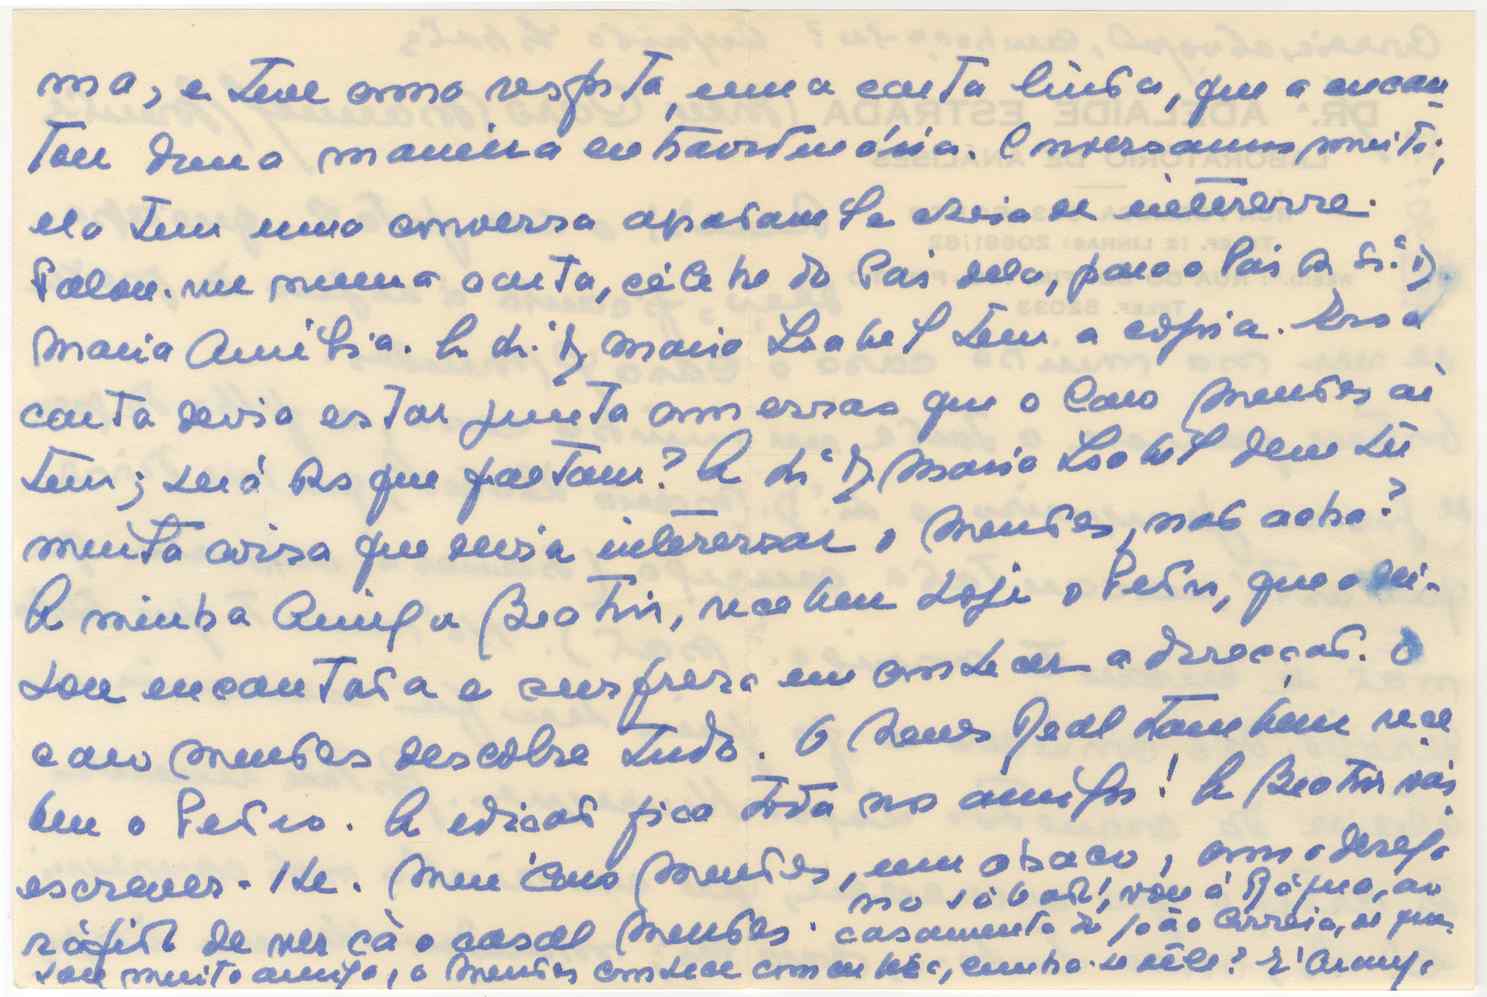 ma, e teve como resposta, uma carta linda, que a encan
tou duma maneira extraordinária. Conversamos muito;
ela tem uma conversa apaixonante cheia de interesse.
Falou-me numa carta, célebre do Pai dela, para o Pai da Sr.ª D.
Maria Amélia. A Sr.ª D. Maria Isabel tem a cópia. Essa
carta devia estar junta com essas que o Caro Mendes aí
tem; será as que faltam? A Sr.ª D. Maria Isabel deve ter
muita coisa que devia interessar o Mendes, não acha?
A minha Amiga Beatriz, recebeu hoje o Pedro, que a dei-
xou encantada e surpresa em conhecer a direcção. O
caro Mendes descobre tudo. O Neves Real também rece
beu o Pedro. A edição fica toda nos amigos! A Beatriz vai
escrever-lhe. Meu Caro Mendes, um abraço, com o desejo
rápido de ver cá o casal Mendes.
no sábado, vou à Régua, ao
casamento do João Correia, de quem
sou muito amiga, o Mendes conhece com certeza, lembra-se dêle? É